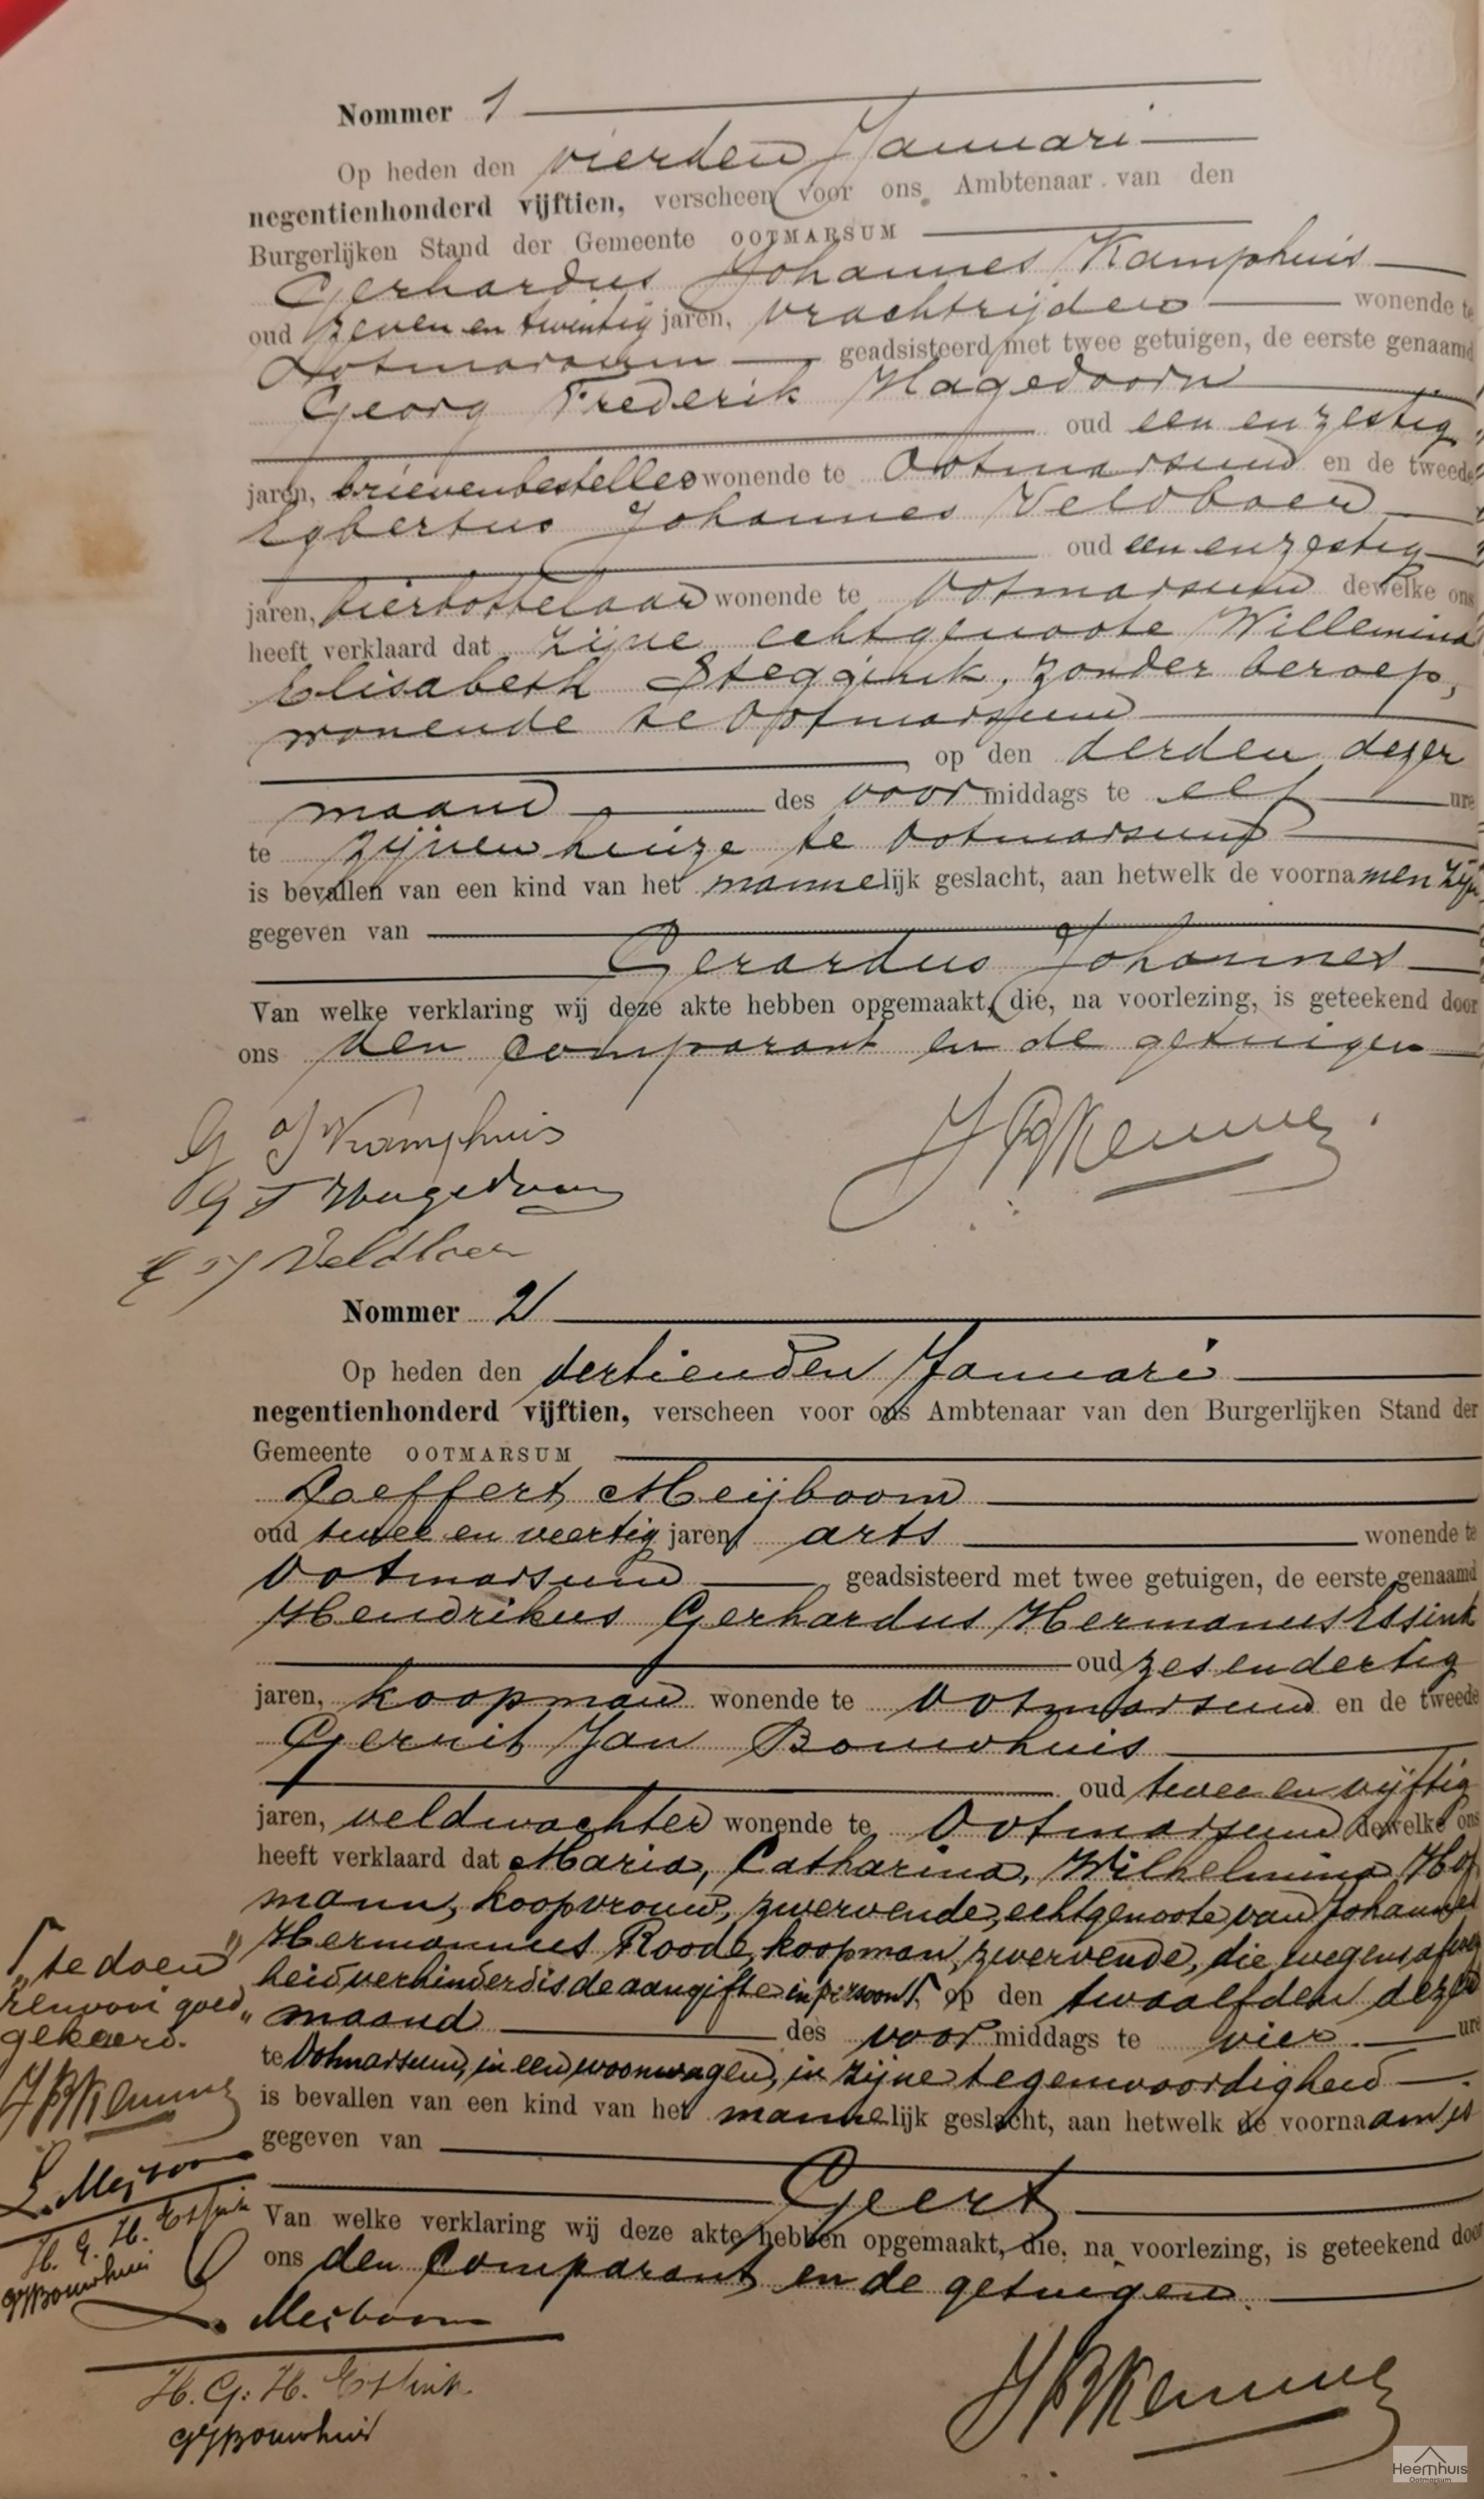 Nommer 1
Op heden den vierden Januari
negentienhonderd vijftien, verscheen voor ons Ambtenaar van den
Burgerlijken Stand der Gemeente OOTMARSUM
Gerhardus Johannes Kamphuis
oud zeven en twintig jaren, vrachtrijder wonende te
Ootmarsum geadsisteerd met twee getuigen, de eerste genaamd
Georg Frederik Hagedoorn
oud een en zestig
jaren, brievenbesteller wonende te Ootmarsum en de tweede
Egbertus Johannes Veldboer
oud een en zestig
jaren, bierbottelaar wonende te Ootmarsum dewelke ons
heeft verklaard dat zijne echtgenoote Willemina
Elisabeth Steggink, zonder beroep,
wonende te Ootmarsum
op den derden dezer
maand des voormiddags te elf ure
te zijnen huize te Ootmarsum
is bevallen van een kind van het mannelijk geslacht, aan hetwelk de voornamen zijn
gegeven van
Gerardus Johannes
Van welke verklaring wij deze akte hebben opgemaakt, die, na voorlezing, is geteekend door
ons den comparant en de getuigen
G J Kamphuis
G F Hagedoorn
E J Veldboer
Nommer 2
Op heden den dertienden Januari
negentienhonderd vijftien, verscheen voor ons Ambtenaar van den Burgerlijken Stand der
Gemeente OOTMARSUM
Loeffert Meijboom
oud twee en veertig jaren, arts wonende te
Ootmarsum geadsisteerd met twee getuigen, de eerste genaamd
Hendrikus Gerhardus Hermanus Essink
oud zes en dertig
jaren, koopman wonende te Ootmarsum en de tweede
Gerrit Jan Bouwhuis
oud twee en vijftig
jaren, veldwachter wonende te Ootmarsum dewelke ons
heeft verklaard dat Maria, Catharina, Wilhelmina Hof
mann, koopvrouw, zwervende, echtgenoote van Johannes
Hermannus Roode, koopman, zwervende, die wegens afwezig
heid verhinderd is de aangifte in persoon ⌈, op den twaalfden dezer
maand des voormiddags te vier ure
te Ootmarsum, in een woonwagen, in zijne tegenwoordigheid
is bevallen van een kind van het mannelijk geslacht, aan hetwelk de voornaam is
gegeven van
Geert
Van welke verklaring wij deze akte hebben opgemaakt, die, na voorlezing, is geteekend door
ons den comparant en de getuigen.
⌈
„te doen"
renvooi goed„
gekeurd.
L. Meijboom
H. G. H. Essink
GJBouwhuis
L. Meijboom
H. G. H. Essink.
GJBouwhuis
Heemhuis
Ootmarsum